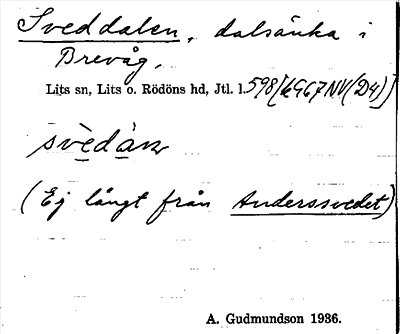 Sveddalen, dalsänka i
Brevåg,
Lits sn, Lits o. Rödöns hd, Jtl. l. 598[6G67NV(D4)]
svèdàn
(Ej långt från Anderssvedet)
A. Gudmundson 1936.